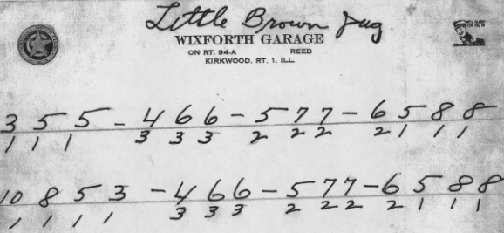 Little Brown Jug
WIXFORTH GARAGE
ON RT. 94-A REED
KIRKWOOD, RT. 1, ILL.
3 5 5 - 4 6 6 - 5 7 7 - 6 5 8 8
1 1 1 3 3 3 2 2 2 2 1 1 1
10 8 5 3 - 4 6 6 - 5 7 7 - 6 5 8 8
1 1 1 1 3 3 3 2 2 2 2 1 1 1